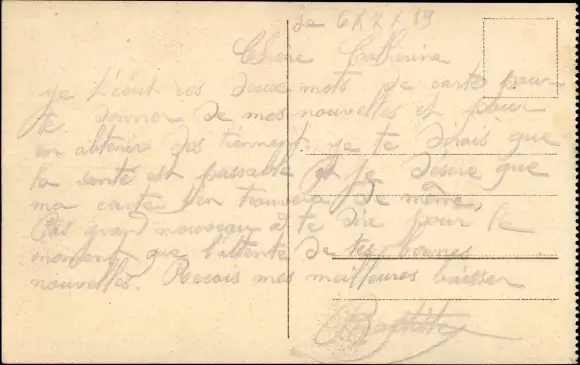 Le 6 X X X 19
Chère Catherine
je t'écrit ces deux mots de carte pour
te donner de mes nouvelles et pour
en obtenir des tiennent. je te dirais que
la santé est passable et je désire que
ma carte t'en trouvera de même,
Pas grand nouveau à te dire pour le
moment que l'attente de tes bonnes
nouvelles. Recois mes meilleures baisser